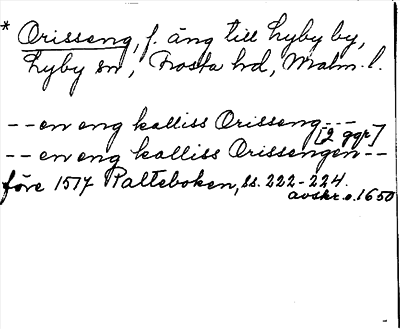 * Orisseng, f. äng till Lyby by,
Lyby sn, Frosta hd, Malm. l.
-- en eng kalliss Orisseng ---
[2 ggr]
-- en eng kalliss Orissengen --
före 1517 Palteboken, ss. 222-224.
avskr. o. 1650